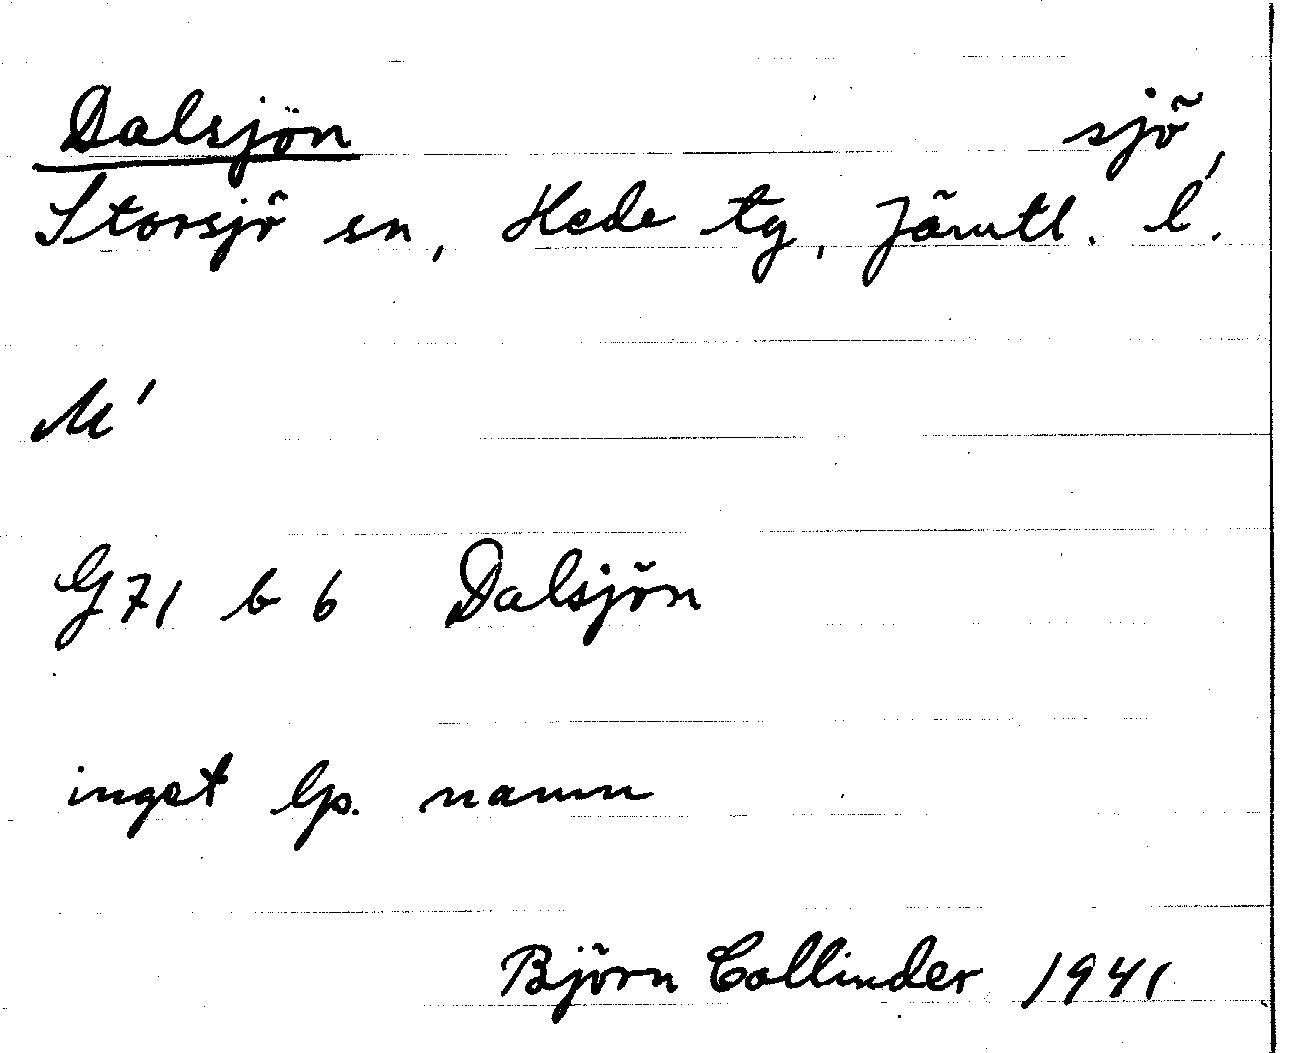 Dalsjön sjö
Storsjö sn, Hede tg, Jämtl. l.
G71 b 6 Dalsjön
inget lp. namn
Björn Collinder 1941